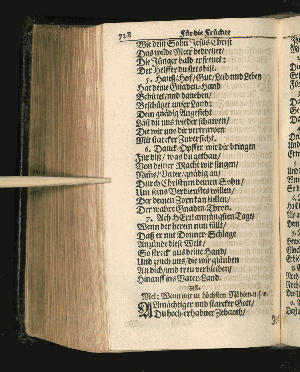 728 Für die Früchte
Wie dein Sohn Jesus Christ
Das wilde Meer bedreuet/
Die Jünger bald erfreuet:
Der Helffer du stets bist.
5. Hauß/ Hof/ Gut/ Leib und Leben
Hat deine Gnaden-Hand
Behütet/ und daneben/
Beschützet unser Land:
Dein gnädig Angesicht
Laß du uns wieder schauen/
Die wir
Mit starcker Zuversicht.
6. Danck-Opffer wir dir bringen
Für diß/ was du gethan/
Von deiner Macht wir singen/
Vater/ gnädig an/
Durch Christum deinen Sohn/
Um seins Verdienstes willen/
Der deinen Zorn kan stillen/
Der wahre Gnaden-Thron.
7. Ach HErr am jüngsten Tage/
Wenn der herein nun fällt/
Daß er mit Donner-Schlage
Anzünde diese Welt/
So streck aus deine Hand/
Und zeuch uns/ die wir gläuben
An dich/ und treu verbleiben/
Hinauf ins Vater-Land.
Mel: Wenn wir in höchsten Nöhten/ [et]c.
Allmächtiger und starcker Gott/
Du hoch-erhabner Zebaoth/